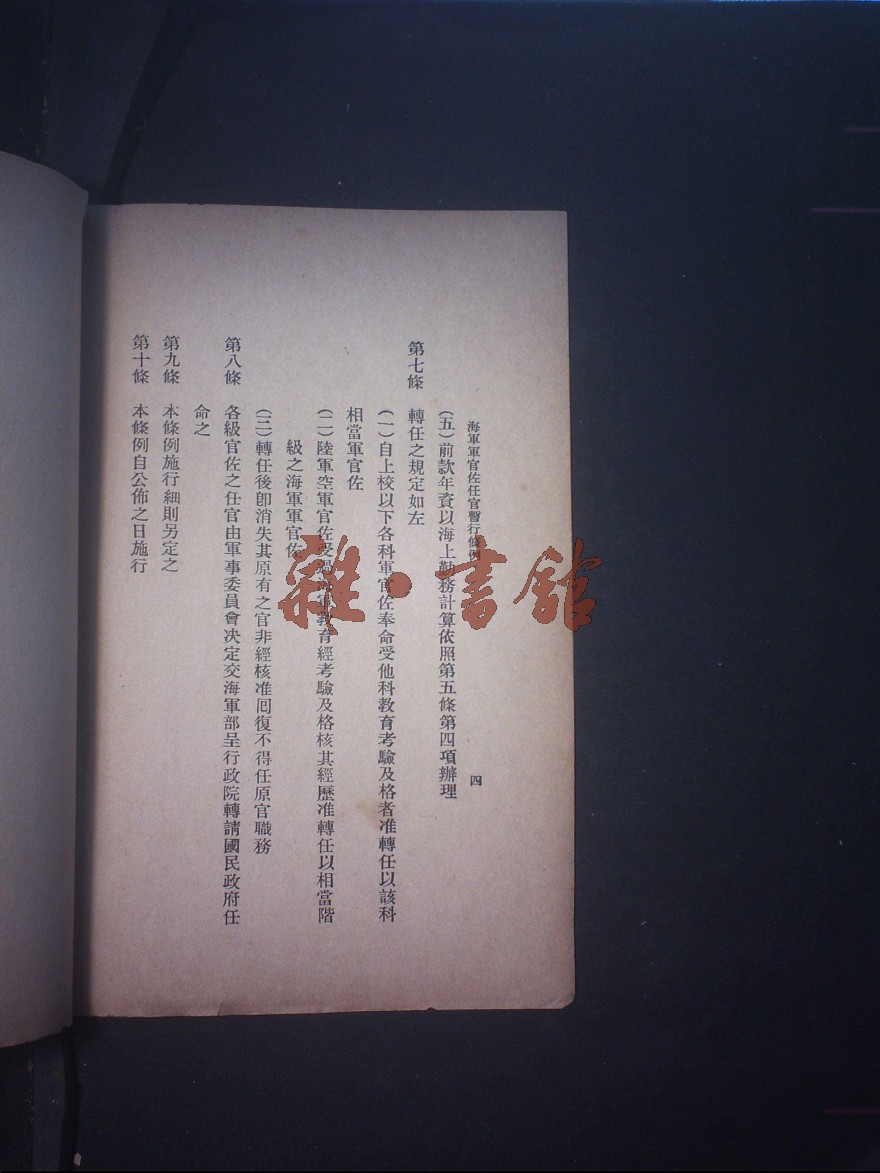 海軍軍官佐任官暫行條例
四
(五)前款年資以海上勤務計算依照第五條第四項辦理
第七條 轉任之規定如左
(一)自上校以下各科軍官佐奉命受他科教育考驗及格者准轉任以該科
相當軍官佐
(二)陸軍空軍官佐受過海軍教育經考驗及格核其經歷准轉任以相當階
級之海軍軍官佐
(三)轉任後卽消失其原有之官非經核准囘復不得任原官職務
第八條 各級官佐之任官由軍事委員會決定交海軍部呈行政院轉請國民政府任
命之
第九條 本條例施行細則另定之
第十條 本條例自公佈之日施行
雜·書館